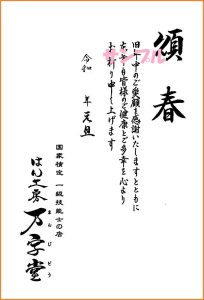 頌春
旧年中のご愛顧を感謝いたしますとともに
皆様のご健康とご多幸を心より
お祈り申し上げます
令和　年元旦
サンプル
国家検定 一級技能士の店
はんこ工房 万字堂
まんじどう